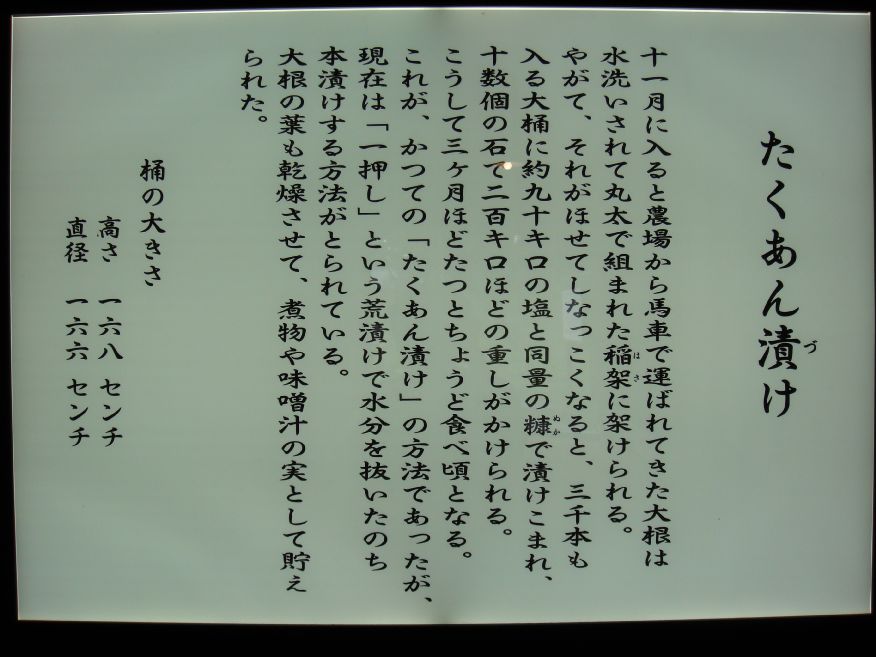 たくあん漬け
づ
十一月に入ると農場から馬車で運ばれてきた大根は
水洗いされて丸太で組まれた稲架に架けられる。
はさ
やがて、それがほせてしなっこくなると、三千本も
入る大桶に約九十キロの塩と同量の糠で漬けこまれ、
ぬか
十数個の石で二百キロほどの重しがかけられる。
こうして三ヶ月ほどたつとちょうど食べ頃となる。
これが、かつての「たくあん漬け」の方法であったが、
現在は「一押し」という荒漬けで水分を抜いたのち
本漬けする方法がとられている。
大根の葉も乾燥させて、煮物や味噌汁の実として貯え
られた。
桶の大きさ
高さ 一六八 センチ
直径 一六六 センチ